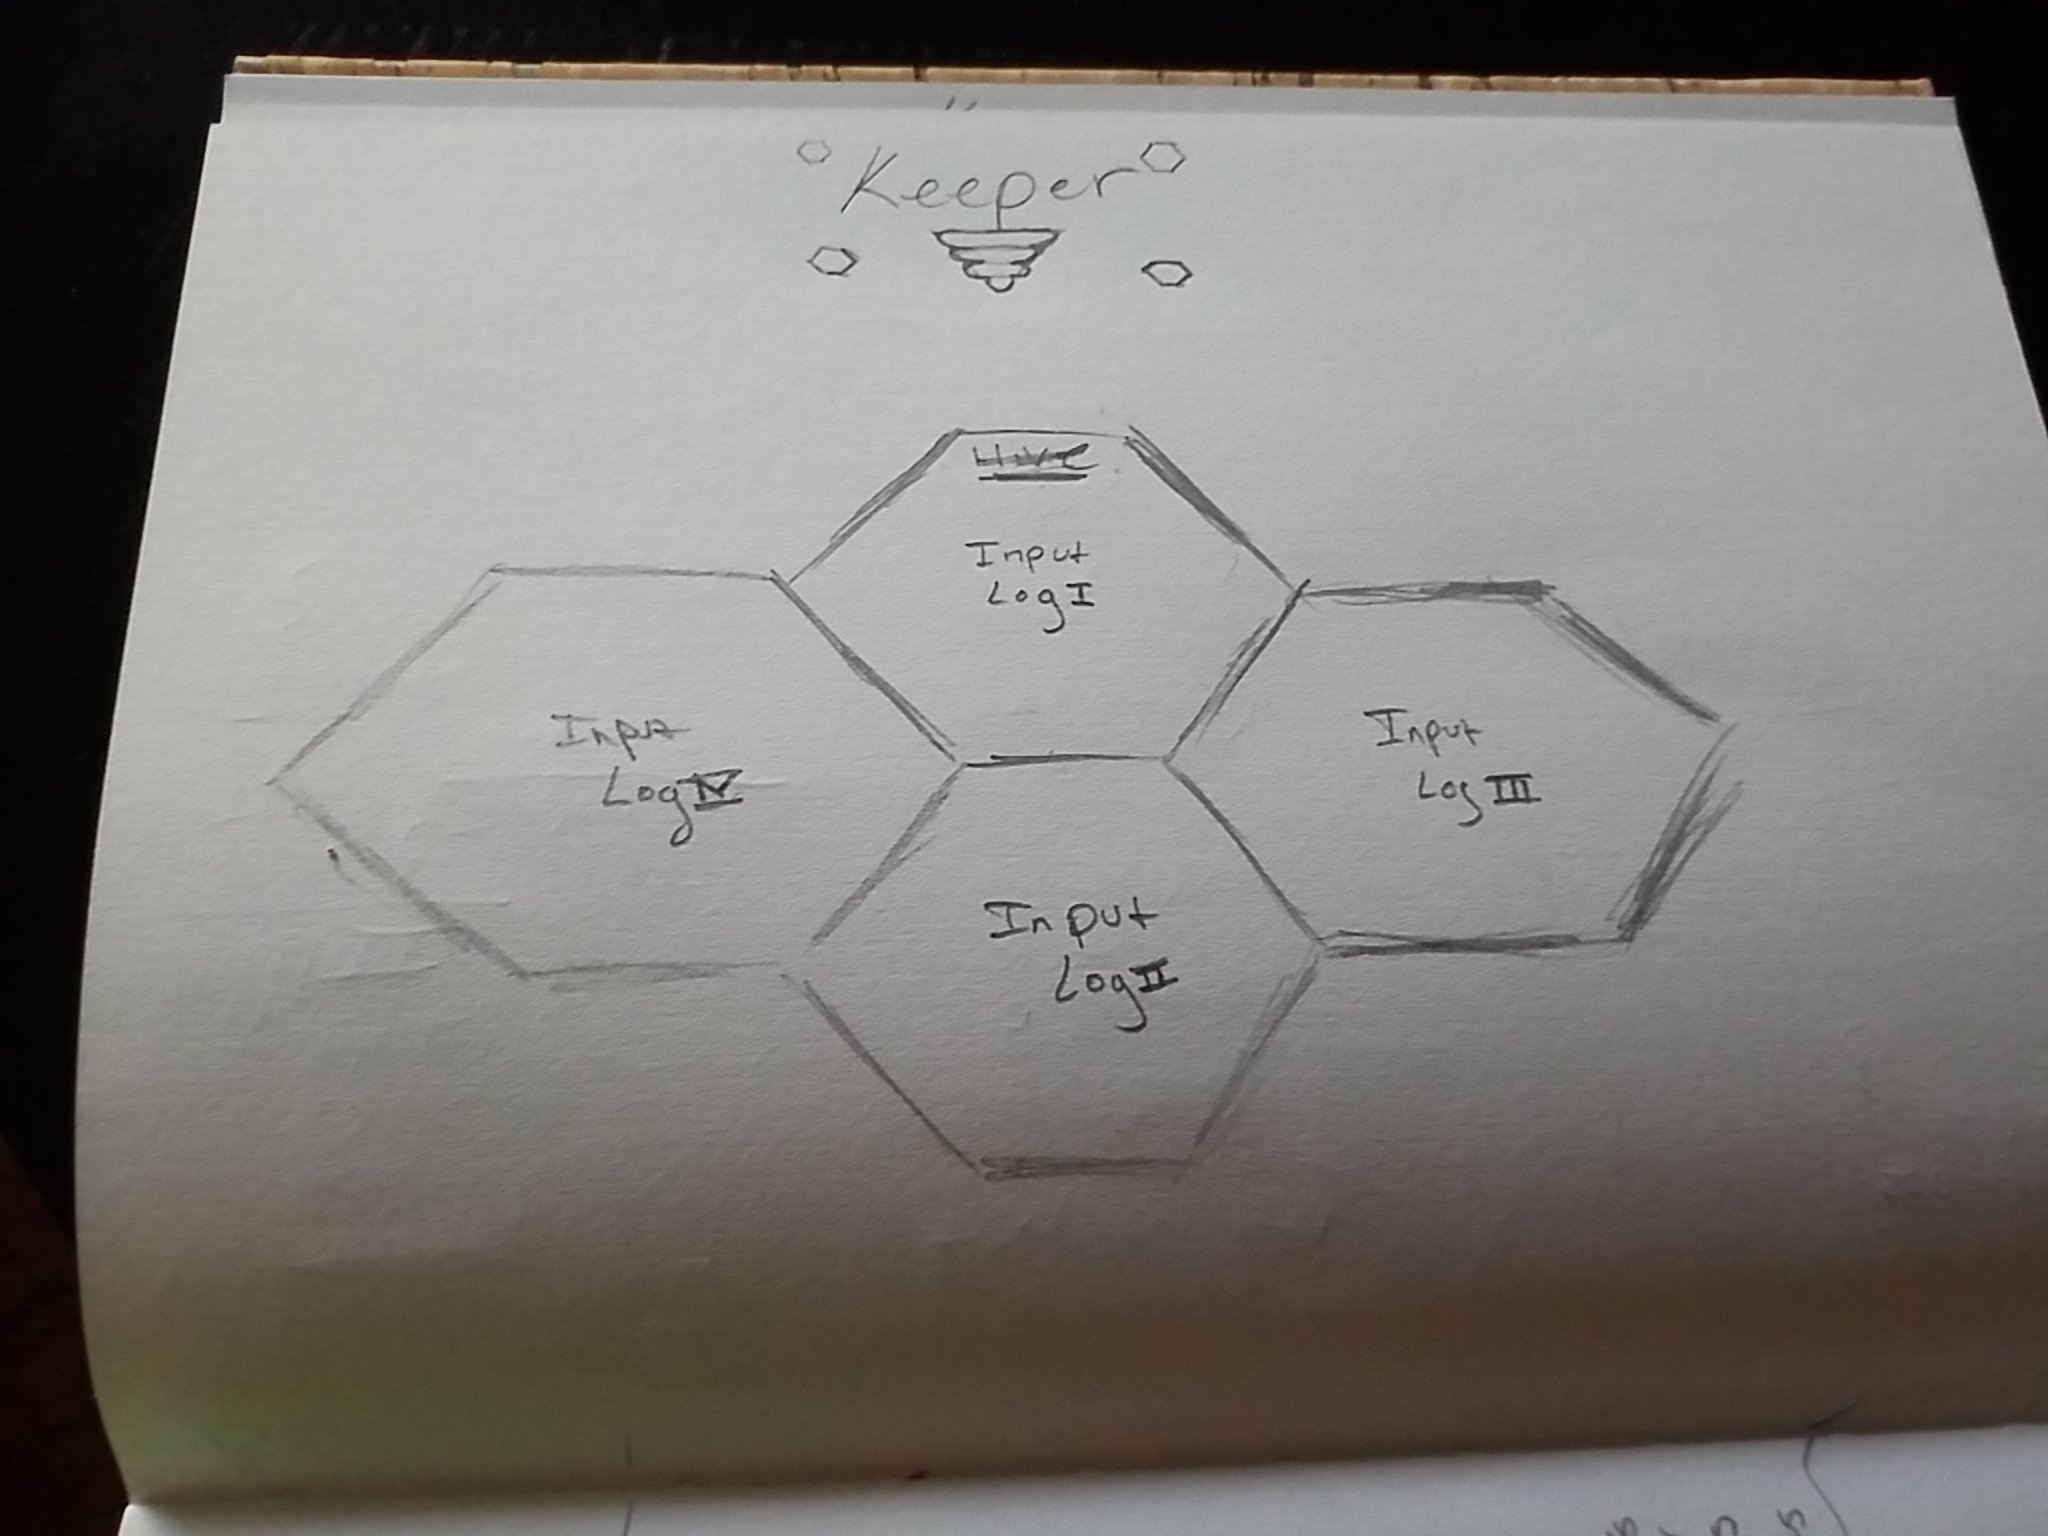 Keeper
Hive
Input
Log I
Input
Log IV
Input
Log III
Input
Log II